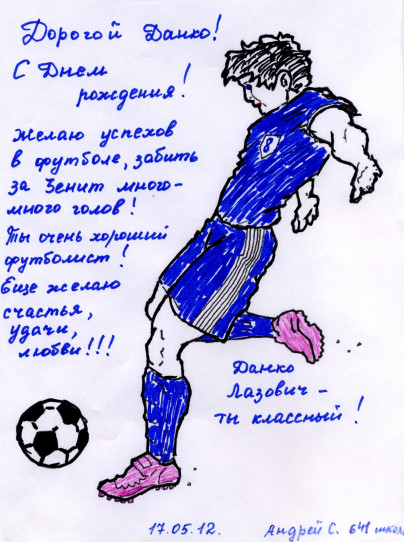 Дорогой Данко!
С Днем
рождения!
Желаю успехов
в футболе, забить
за Зенит много-
много голов!
Ты очень хороший
футболист!
Еще желаю
счастья,
удачи,
любви!!!
8
Данко
Лазович -
ты классный!
17.05.12.
Андрей С. 641 школа